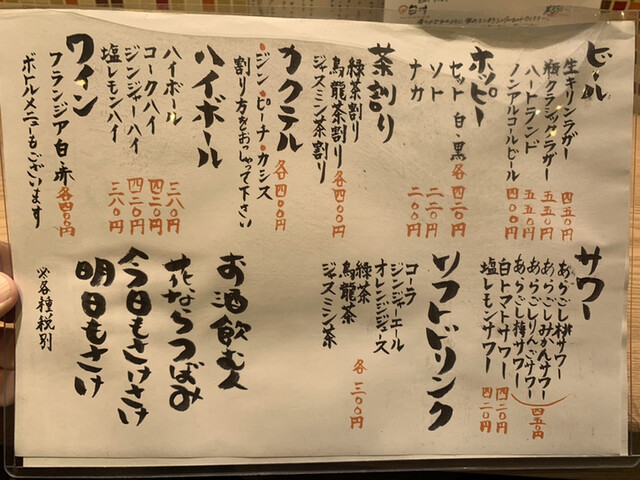 ビール
生キリンラガー 四五〇円
瓶クラシックラガー 五五〇円
ハートランド 五五〇円
ノンアルコールビール 四〇〇円
ホッピー
セット 白・黒 各四二〇円
ソト 二二〇円
ナカ 二〇〇円
茶割り
緑茶割り
烏龍茶割り 各四〇〇円
ジャスミン茶割り
カクテル
・ジン・ピーチ・カシス 各四〇〇円
割り方をおっしゃって下さい
ハイボール
ハイボール 三八〇円
コークハイ 四二〇円
ジンジャーハイ 四二〇円
塩レモンハイ 三八〇円
ワイン
フランジア 白・赤 各四〇〇円
ボトルメニューもございます
サワー
あらごし桃サワー
あらごしみかんサワー
あらごしりんごサワー 四五〇円
あらごし梅サワー
白トマトサワー 四二〇円
塩レモンサワー 四二〇円
ソフトドリンク
コーラ
ジンジャーエール
オレンジジュース
緑茶 各三〇〇円
烏龍茶
ジャスミン茶
お酒飲む人
花ならつぼみ
今日もさけさけ
明日もさけ
※各種税別